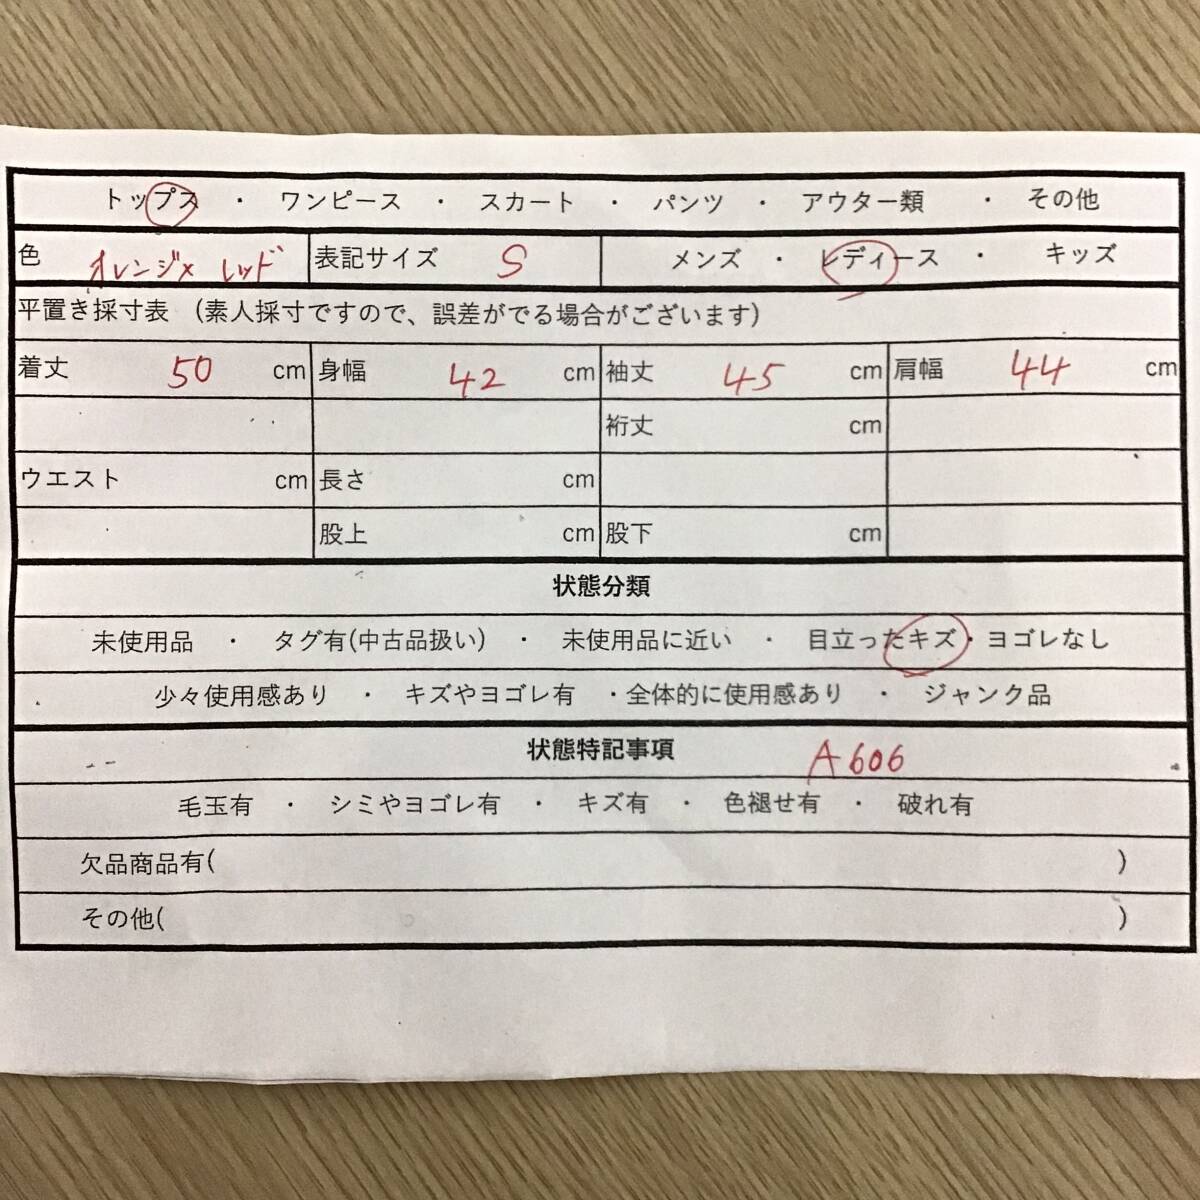 トップス ・ ワンピース ・ スカート ・ パンツ ・ アウター類 ・ その他
色 オレンジ×レッド 表記サイズ S メンズ ・ レディース ・ キッズ
平置き採寸表 (素人採寸ですので、誤差がでる場合がございます)
着丈 50 cm 身幅 42 cm 袖丈 45 cm 肩幅 44 cm
裄丈 cm
ウエスト cm 長さ cm
股上 cm 股下 cm
状態分類
未使用品 ・ タグ有(中古品扱い) ・ 未使用品に近い ・ 目立ったキズ・ヨゴレなし
少々使用感あり ・ キズやヨゴレ有 ・全体的に使用感あり ・ ジャンク品
状態特記事項 A606
毛玉有 ・ シミやヨゴレ有 ・ キズ有 ・ 色褪せ有 ・ 破れ有
欠品商品有( )
その他( )